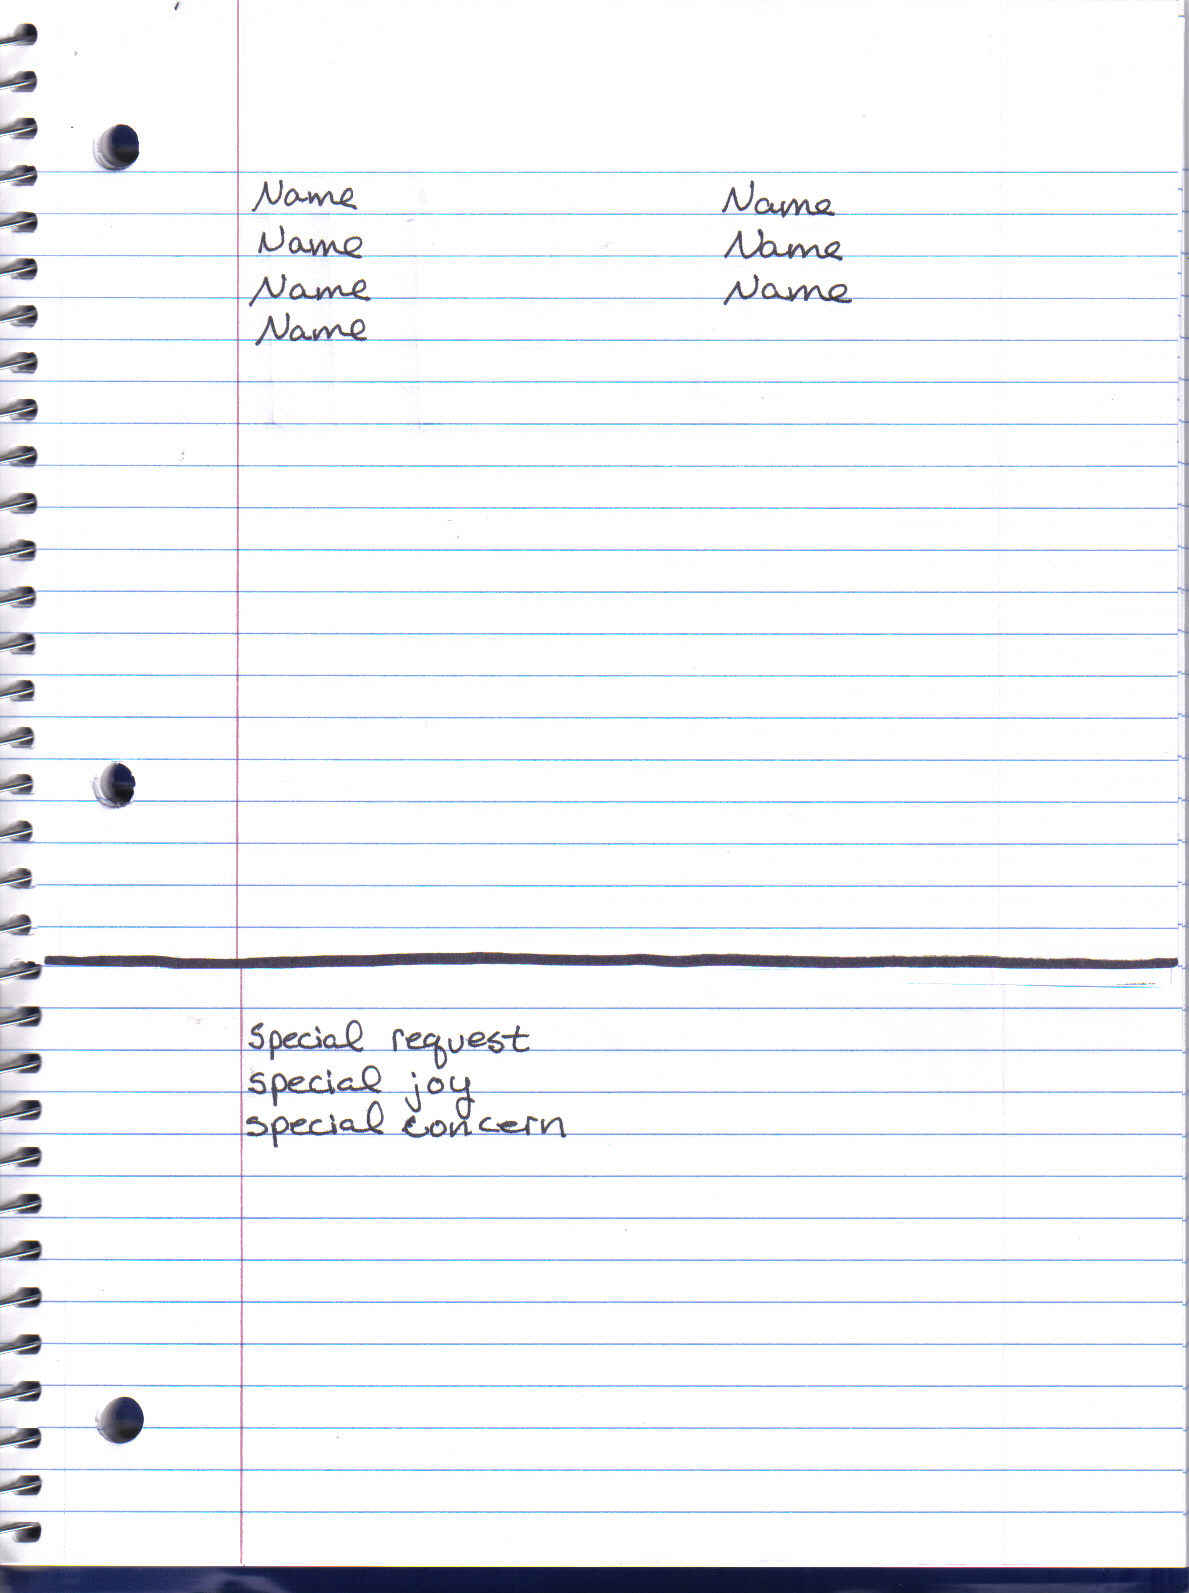 Name Name
Name Name
Name Name
Name
special request
special joy
special concern